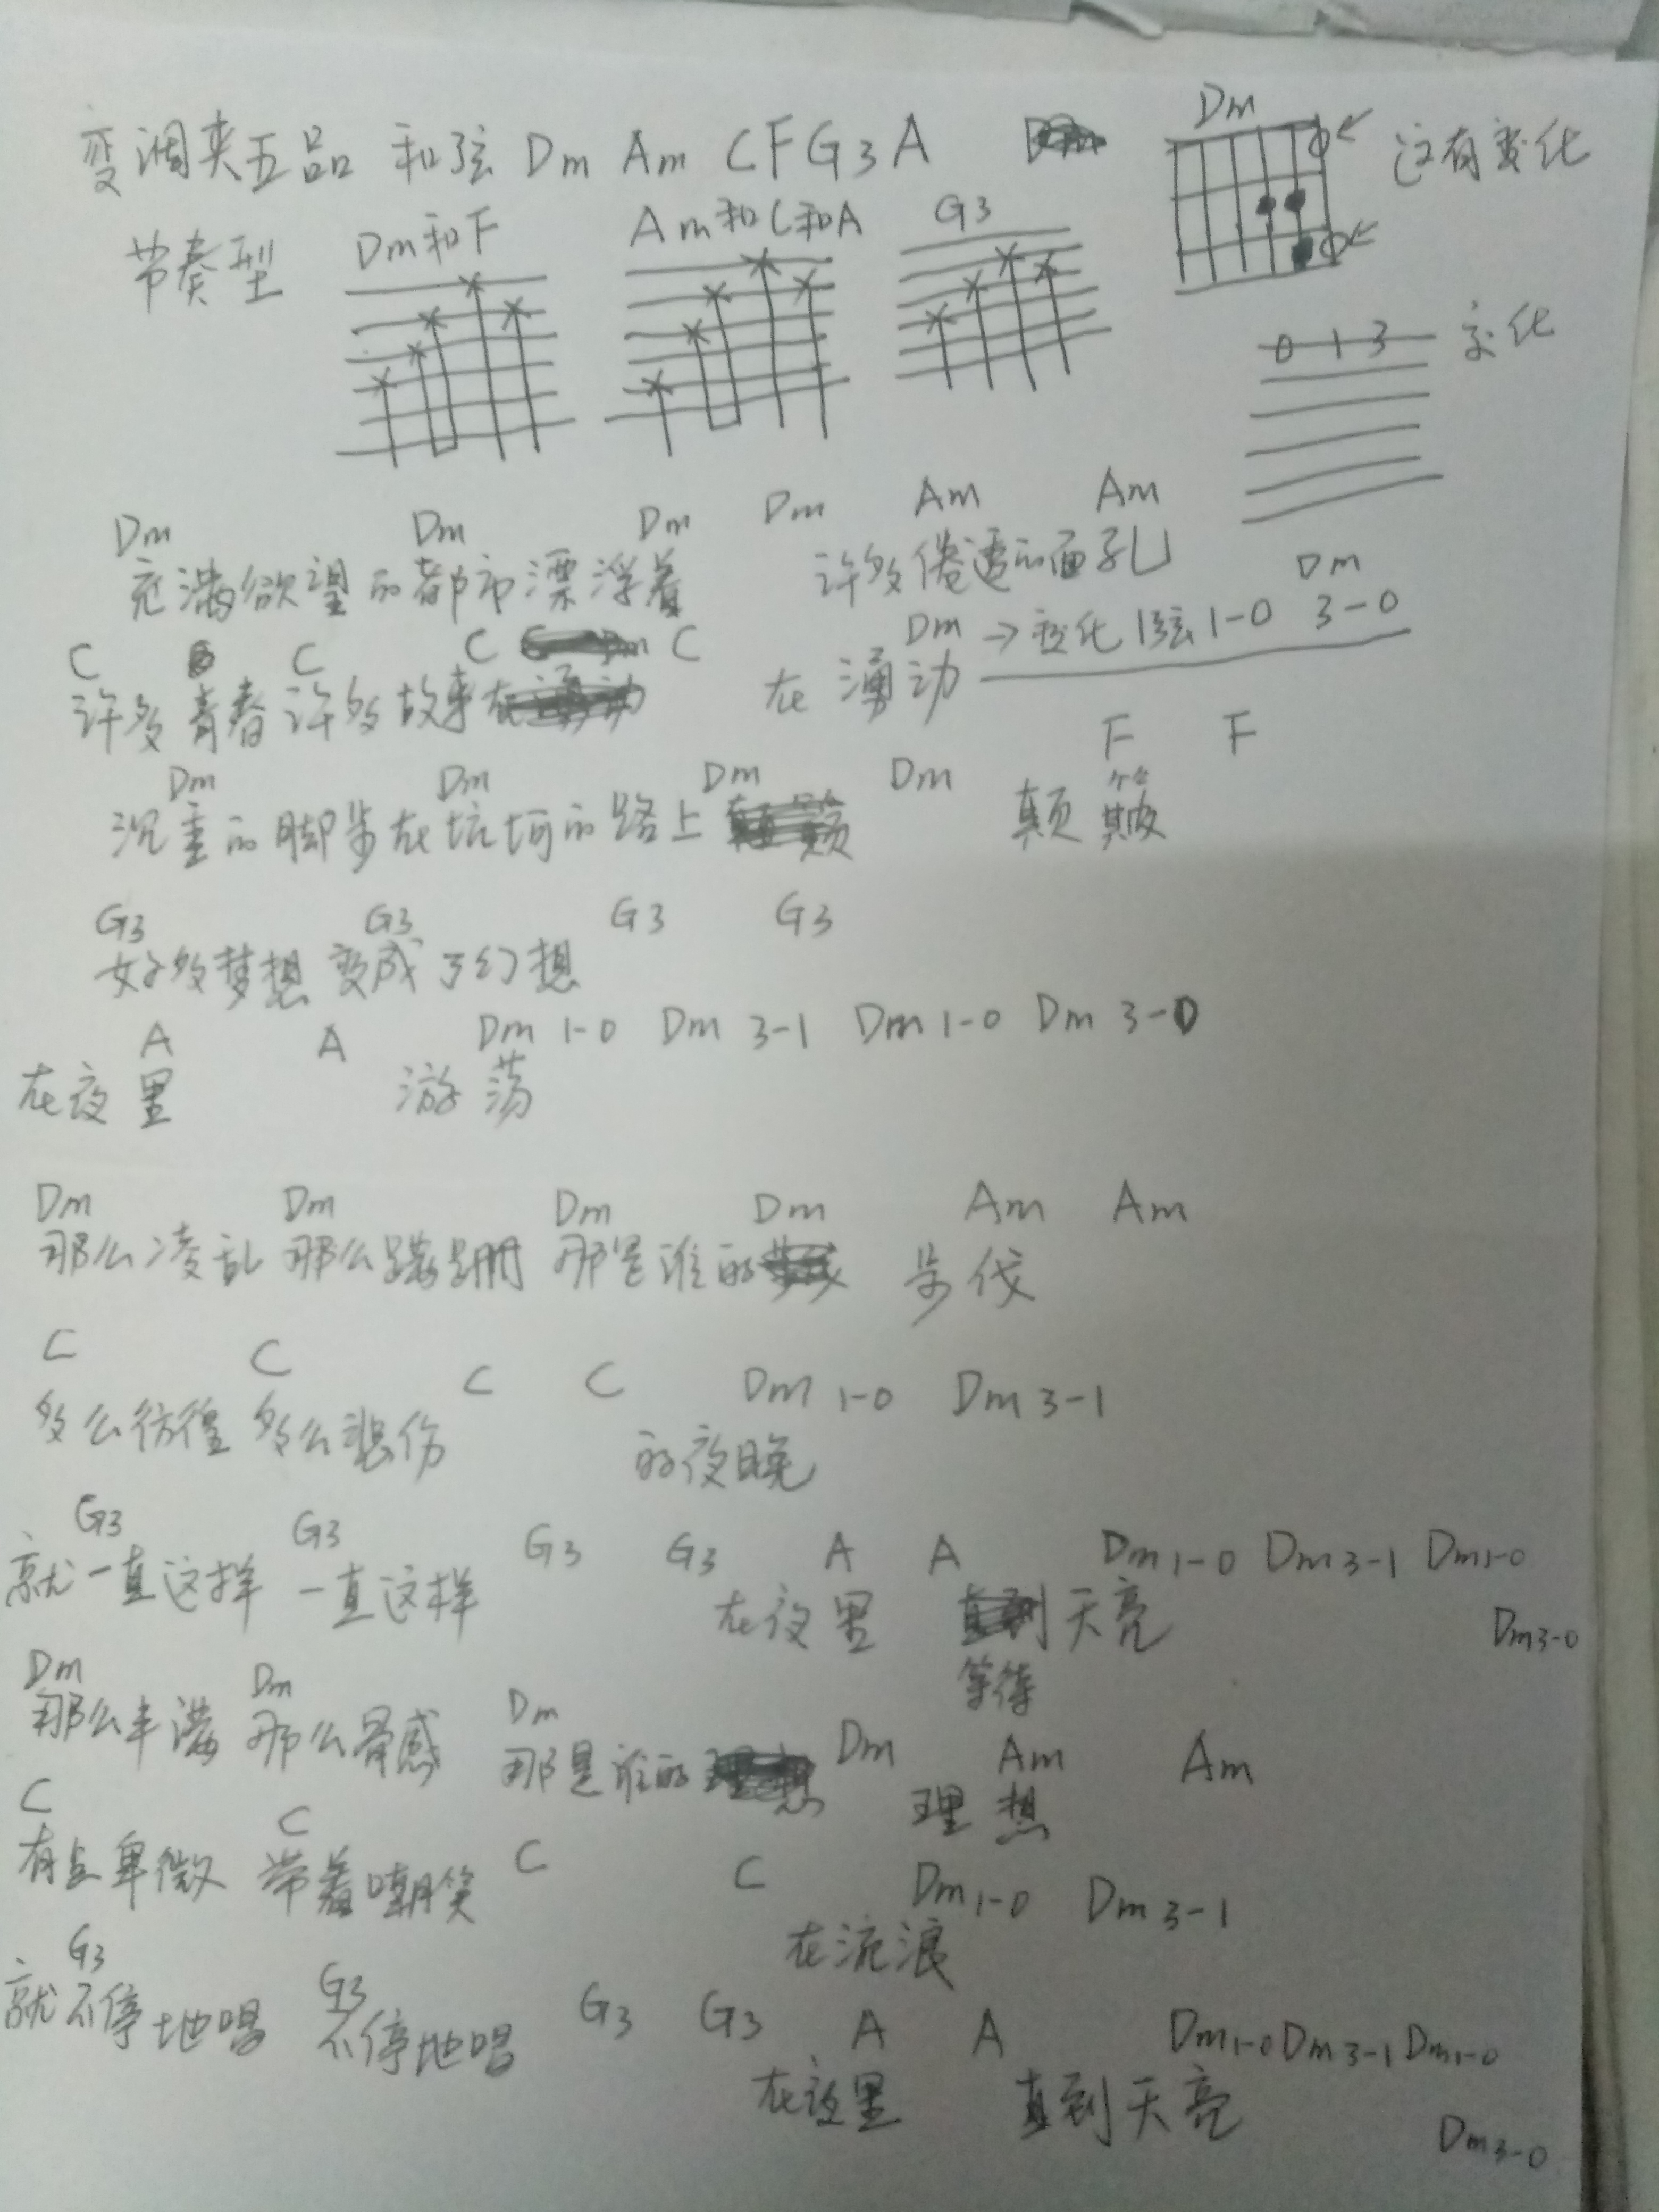 变调夹五品 和弦 Dm Am C F G3 A
Dm
这有变化
节奏型 Dm和F Am和C和A G3
0 1 3 变化
Dm Dm Dm Dm Am Am
充满欲望的都市漂浮着 许多倦透的面孔
C C C C Dm → 变化1弦1-0 Dm 3-0
许多青春许多故事在 在涌动
Dm Dm Dm Dm F F
沉重的脚步在坑坷的路上 颠簸
G3 G3 G3 G3
好多梦想变成了幻想
A A Dm 1-0 Dm 3-1 Dm 1-0 Dm 3-0
在夜里 游荡
Dm Dm Dm Dm Am Am
那么凌乱 那么蹒跚 那是谁的 步伐
C C C C Dm 1-0 Dm 3-1
多么彷徨 多么悲伤 的夜晚
G3 G3 G3 G3 A A Dm 1-0 Dm 3-1 Dm1-0
就一直这样 一直这样 在夜里 天亮
Dm3-0
等待
Dm Dm Dm Dm Am Am
那么丰满 那么骨感 那是谁的 理想
C C C C Dm 1-0 Dm 3-1
有点卑微 带着嘲笑 在流浪
G3 G3 G3 G3 A A Dm1-0 Dm3-1 Dm1-0
就不停地唱 不停地唱 在夜里 直到天亮
Dm3-0